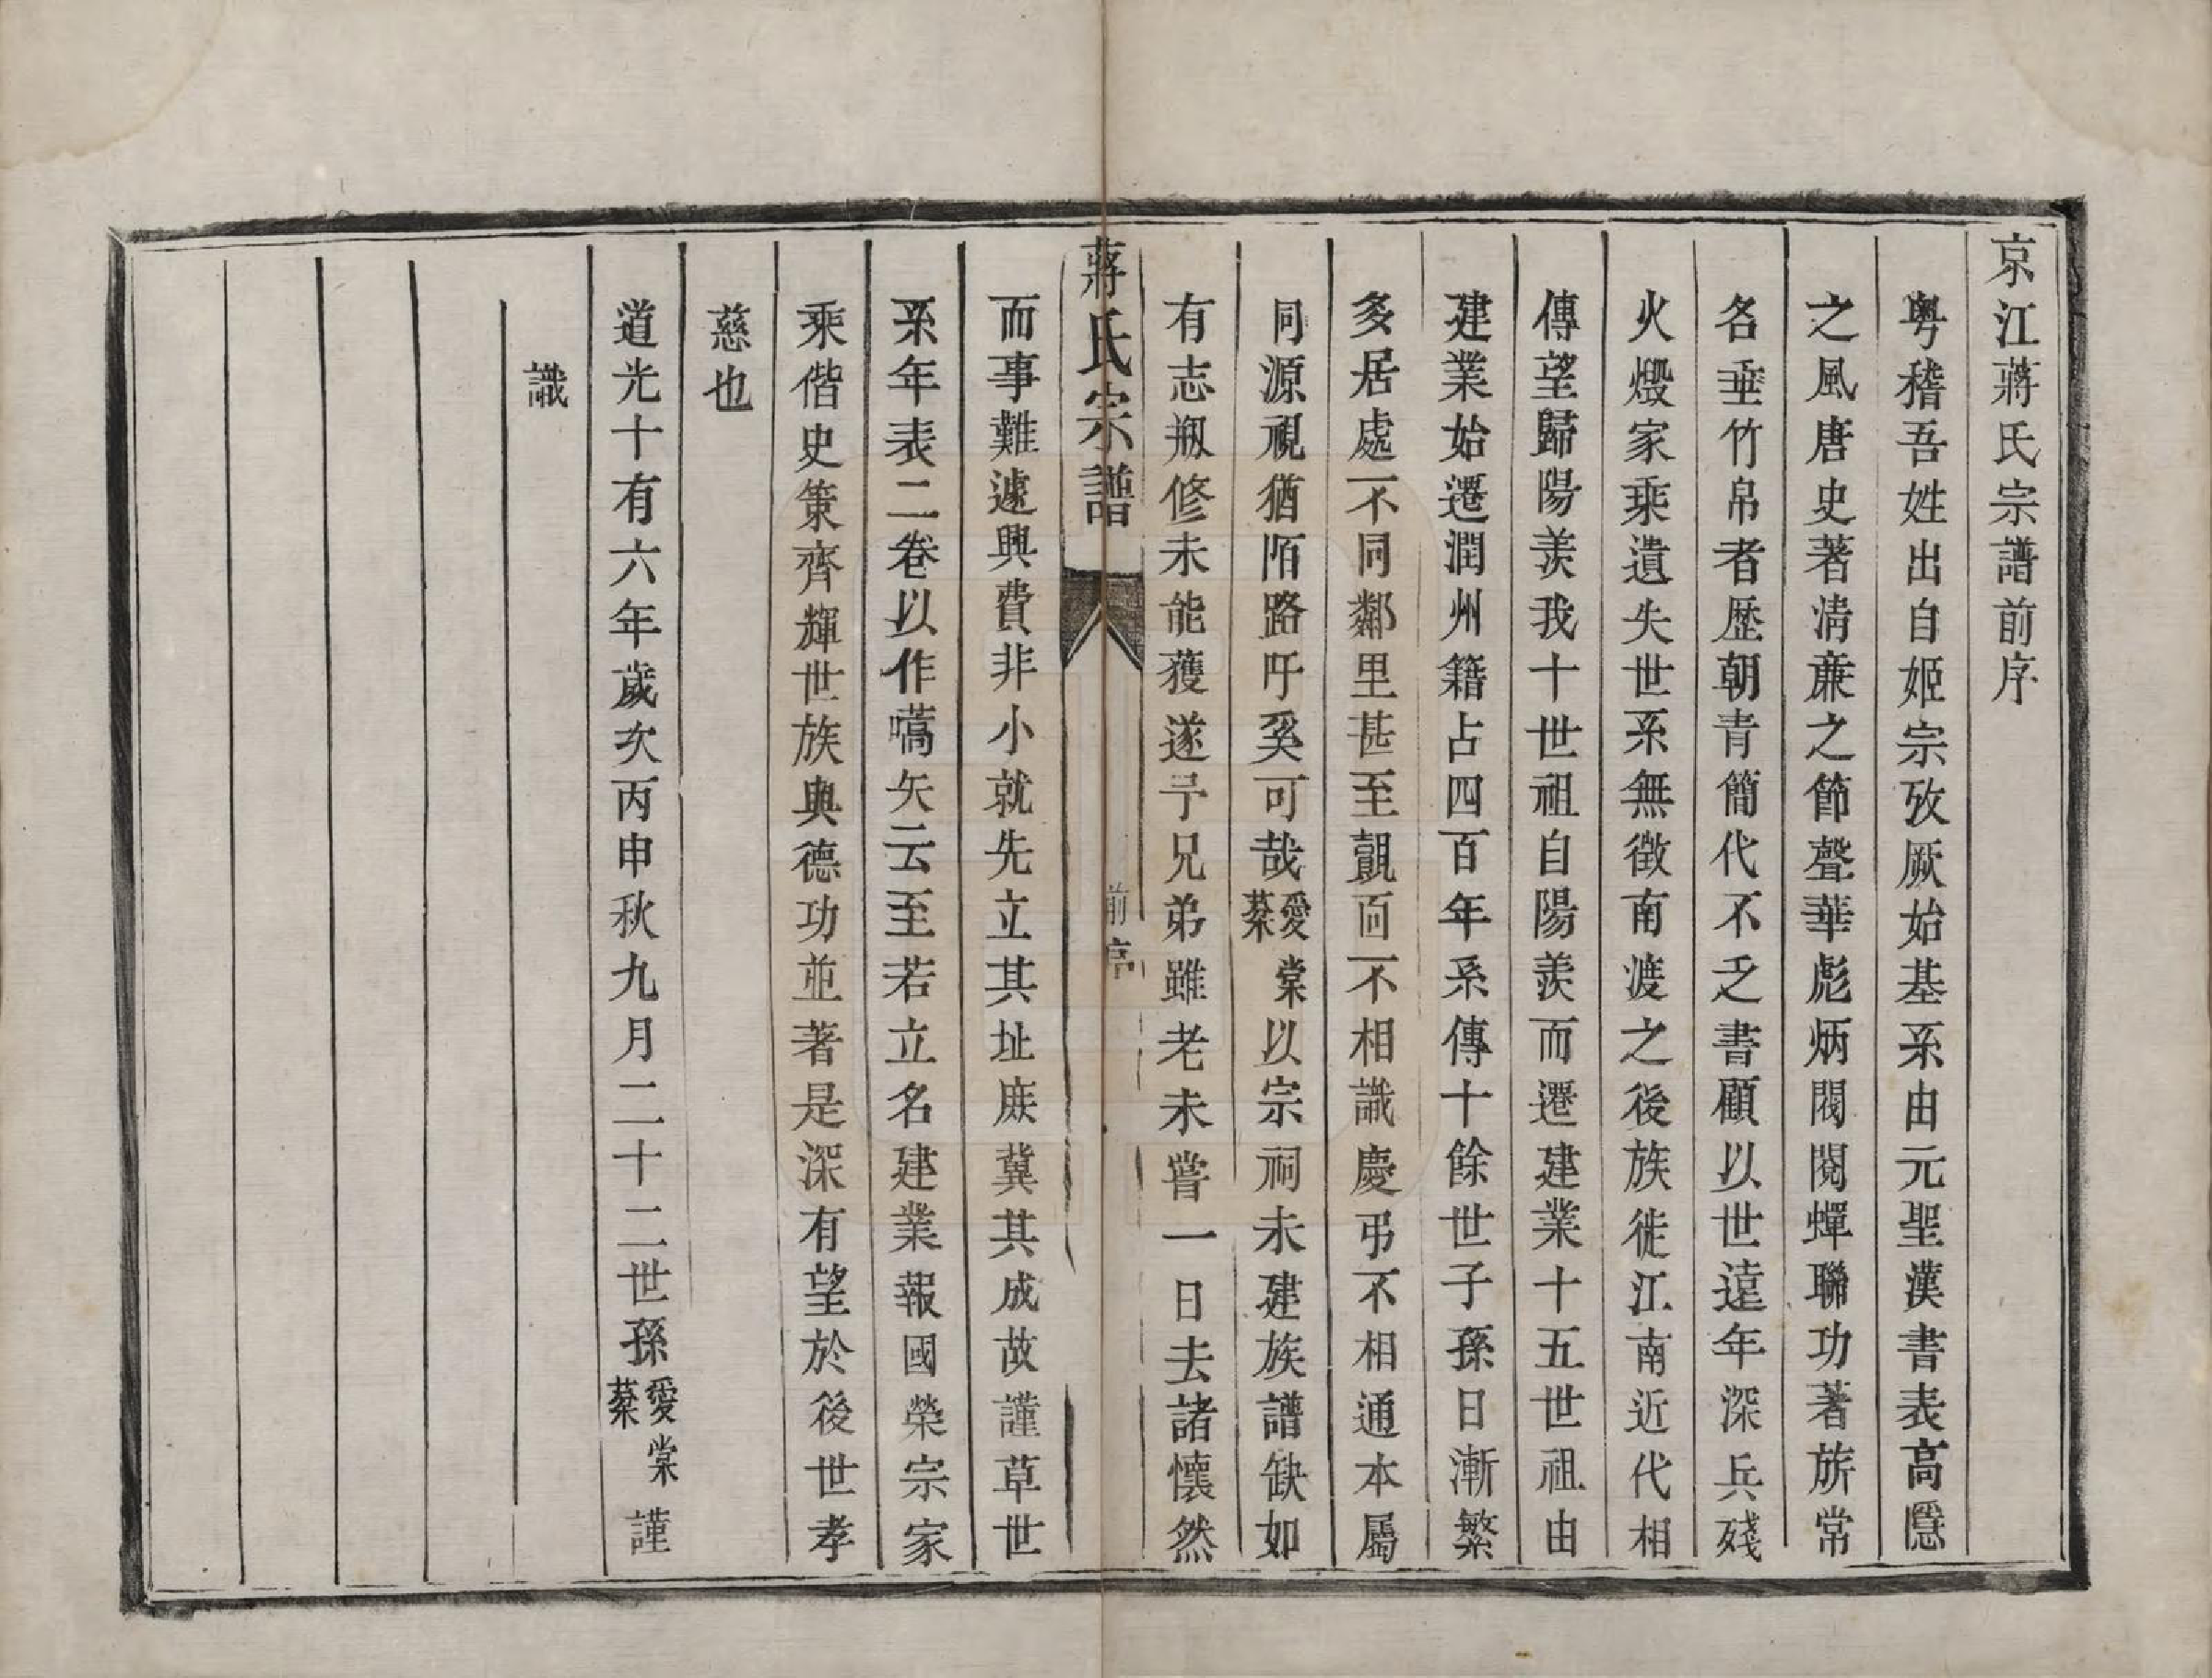 京江蔣氏宗譜前序
粤稽吾姓出自姬宗攷厥始基系由元聖漢書表高隱
之風唐史著清亷之節聲華彪炳閥閱蟬聯功著旂常
名垂竹帛者歷朝青簡代不乏書顧以世遠年深兵殘
火燬家乘遺失世系無徵南渡之後族徙江南近代相
傳望歸陽羨我十世祖自陽羨而遷建業十五世祖由
建業始遷潤州籍占四百年系傳十餘世子孫日漸繁
多居處不同鄰里甚至覿面不相識慶弔不相通本屬
同源視猶陌路吁奚可哉愛蔡棠以宗祠未建族譜缺如
有志刱修未能獲遂予兄弟雖老未嘗一日去諸懷然
蔣氏宗譜 前序
而事難遽興費非小就先立其址庶冀其成故謹草世
系年表二卷以作嚆矢云至若立名建業報國榮宗家
乘偕史策齊輝世族與德功並著是深有望於後世孝
慈也
道光十有六年歲次丙申秋九月二十二世孫愛蔡棠謹
識